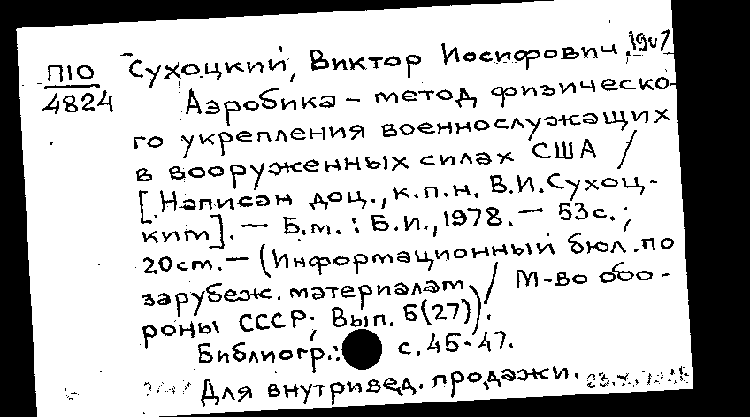 П10
4824
Сухоцкий, Виктор Иосифович,
Аэробика – метод физическо-
го укрепления военнослужащих
в вооруженных силах США /
[Написан доц., к.п.н. В.И. Сухоц-
ким]. — Б.м. : Б.И., 1978. — 53с.;
20см. — (Информационный бюл. по
зарубеж. материалам / М-во обо-
роны СССР; Вып. 6(27)).
Библиогр.: с. 45-47.
Для внутривед. продажи.